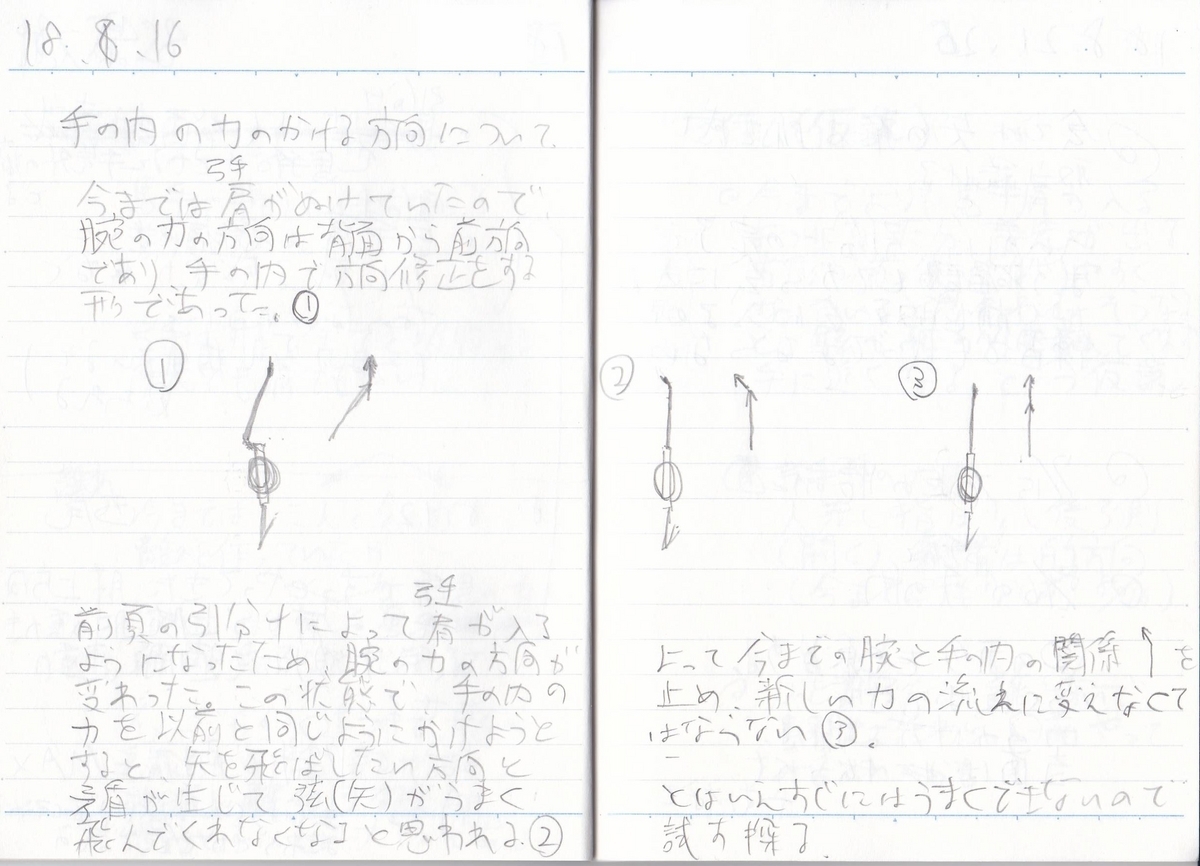 18.8.16
手の内の力のかける方向について
弓手
今までは肩がぬけていたので
腕の力の方向は背面から前方向
であり手の内で方向修正をする
形であった。①
①
弓手
前頁の引分けによって肩が入る
ようになったため、腕の力の方向が
変わった。この状態で、手の内の
力を以前と同じようにかけようと
すると、矢を飛ばしたい方向と
矛盾が生じて弦(矢)がうまく
飛んでくれなくなると思われる。②
② ③
よって、今までの腕と手の内の関係↑を
止め、新しい力の流れに変えなくて
はならない③。
とはいえすぐにはうまくできないので
試す探る。